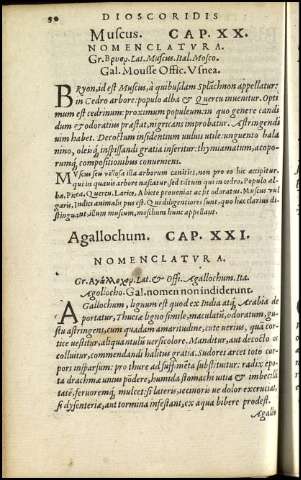 50 DIOSCORIDIS
Muscus. CAP. XX.
NOMENCLATVRA.
Gr. Βρυον. Lat. Muscus. Ital. Mosco.
Gal. Mousse Offic. Vsnea.
BRyon, id est Muscus, à quibusdam Splachnon appellatur:
in Cedro arbore: populo alba & Quercu inuenitur. Opti
mum est cedrinum: proximum populeum: in quo genere candi
dum & odoratum præstat, nigricans improbatur. Astringendi
uim habet. Decoctum insidentium uuluis utile: unguento bala
nino, oleisq́; inspissandi gratia inseritur: thymiamatum, acopo-
rumq́; compositionibus conueniens.
MVscus seu villosa illa arborum canities, non pro eo hic accipitur,
qui in quauis arbore nascatur, sed tantum qui in cedro, Populo al-
ba, Picea, Quercu, Larice, Abiete proueniat ac sit odoratus. Muscus vul
garis, Indici animalis pus est. Qui diligentiores sunt, quo hæc clarius di-
stinguant, illum muscum, moschum hunc appellant.
Agallochum. CAP. XXI.
NOMENCLATVRA.
Gr. Αγάλλοχον. Lat. & Offi. Agallochum. Ita.
Agollocho. Gal. nomen non indiderunt.
AGallochum, lignum est quod ex India atq́; Arabia de
portatur, Thuiæ ligno simile, maculatū, odoratum, gu-
stu astringens, cum quadam amaritudine, cute uerius, quà cor-
tice uestitur, aliquantulū uersicolore. Manditur, aut decocto os
colluitur, commendandi halitus gratia. Sudores arcet toto cor-
pori inspersum: pro thure ad suffimēta substituitur: radix epo-
ta drachmæ unius pōdere, humida stomachi uitia & imbecilli
tatē, feruoremq́; mulcet: si lateris, iecinoris ue dolor excruciat,
si dysenteriæ, aut tormina infestant, ex aqua bibere prodest.
Agallo